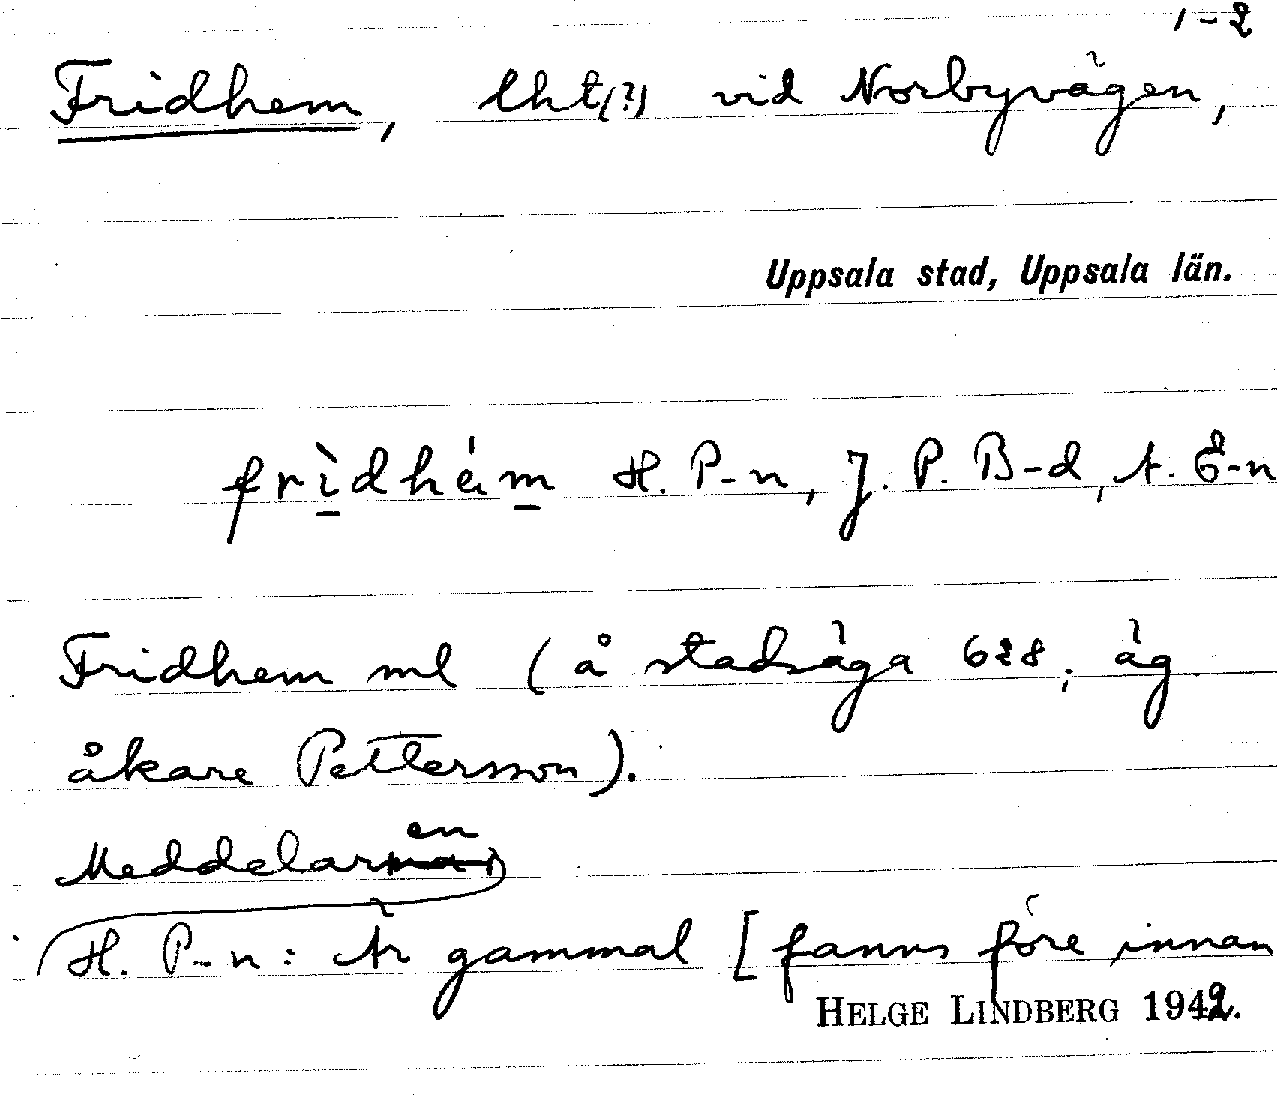 1-2
Fridhem, lht(?) vid Norbyvägen,
Uppsala stad, Uppsala län.
frìdhém H. P-n, J. P. B-d, A. Ö-n
Fridhem ml (å stadsäga 628; äg
åkare Pettersson).
Meddelaren
H. P-n: Är gammal [fanns före innan
HELGE LINDBERG 1942.